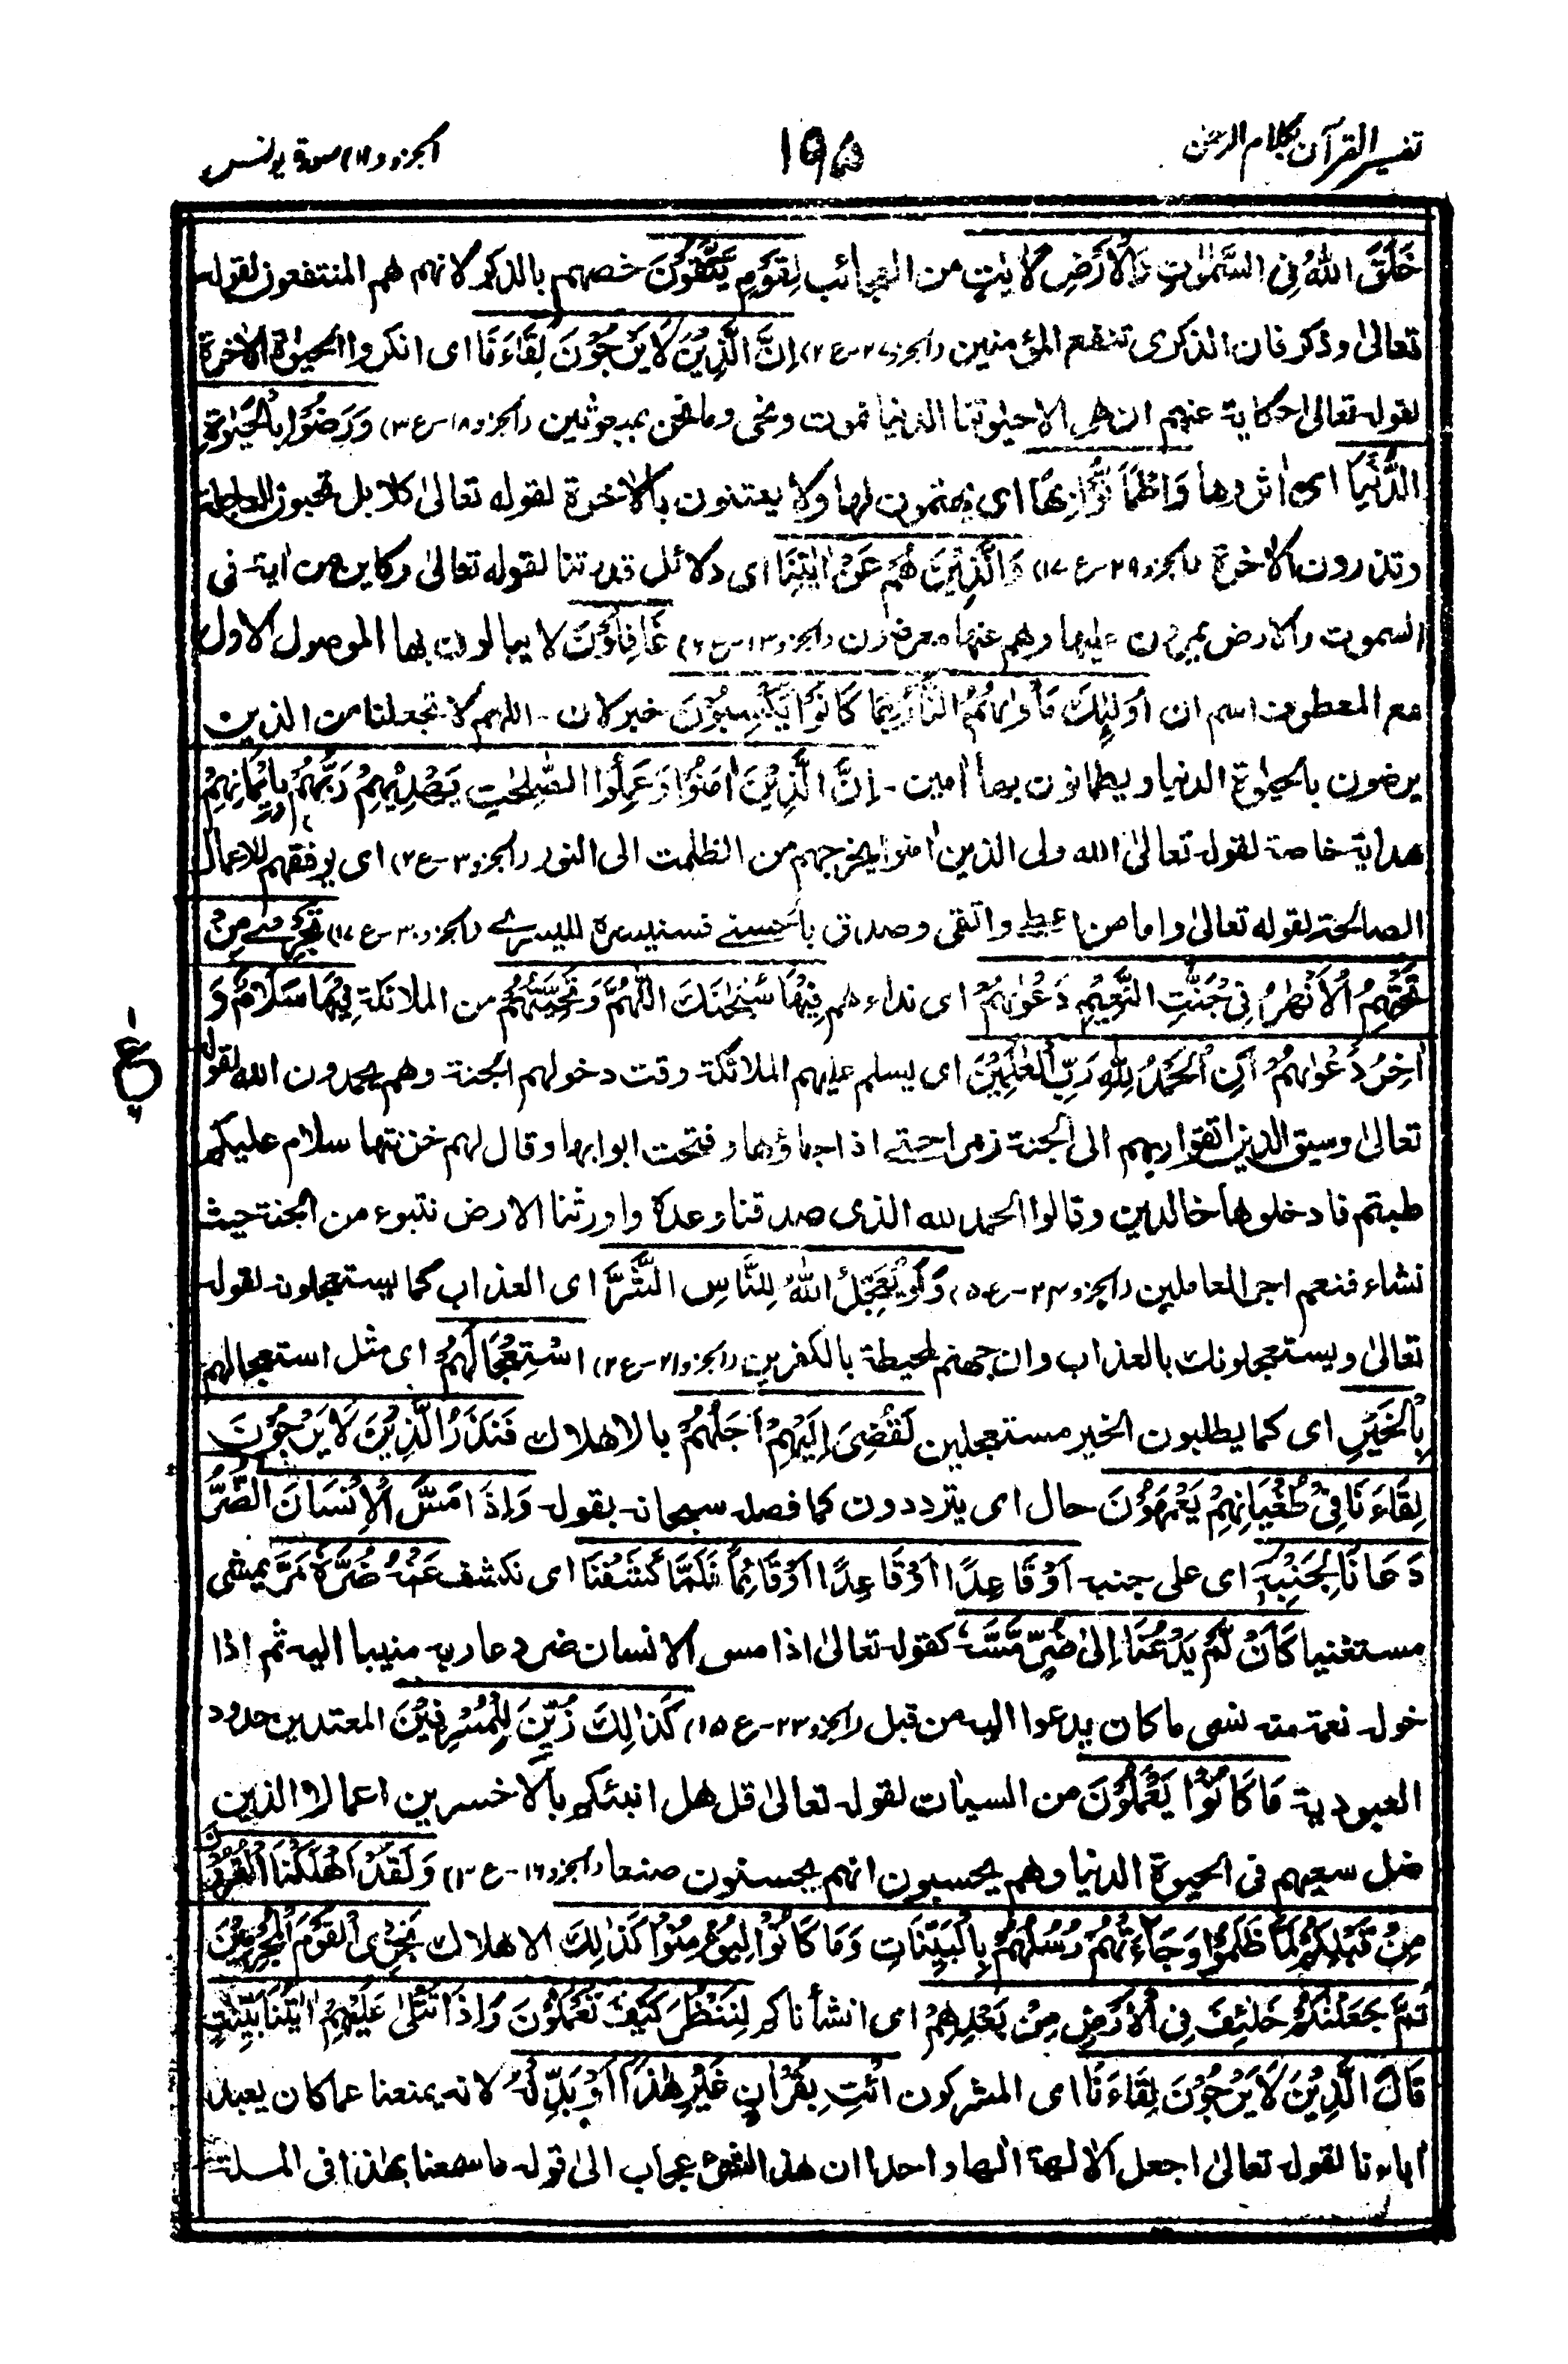 تفسير القرآن بكلام الرحمن
١٩٥
الجزو (١١) سورة يونس
خَلَقَ اللّٰهُ فِى السَّمٰوٰتِ وَالْاَرْضِ لَاٰيٰتٍ من العجائب لِقَوْمٍ يَتَّقُوْنَ خصهم بالذكر لانهم هم المنتفعون لقوله
تعالىٰ وذكر فان الذكرى تنفع المؤمنين (الجزو ٢٧-ع ٢) اِنَّ الَّذِيْنَ لَا يَرْجُوْنَ لِقَاءَنَا اى انكروا الحيوٰة الاٰخرة
لقوله تعالىٰ حكاية عنهم ان هى الا حيوتنا الدنيا نموت ونحى وما نحن بمبعوثين (الجزو ١٨-ع ٣) وَرَضُوْا بِالْحَيٰوةِ
الدُّنْيَا اى اٰثروها وَاطْمَاَنُّوْا بِهَا اى يهتمون لها ولا يعتنون بالاٰخرة لقوله تعالىٰ كلا بل تحبون العاجلة
وتذرون الاٰخرة (الجزو ٢٩-ع ١٧) وَالَّذِيْنَ هُمْ عَنْ اٰيٰتِنَا اى دلائل قدرتنا لقوله تعالىٰ وكاين من اٰية فى
السموت والارض يمرون عليها وهم عنها معرضون (الجزو ١٣-ع ٦) غَافِلُوْنَ لا يبالون بها الموصول الاول
مع المعطوف اسم ان اُولٰٓئِكَ مَأْوٰىهُمُ النَّارُ بِمَا كَانُوْا يَكْسِبُوْنَ خبر لان - اللهم لا تجعلنا من الذين
يرضون بالحيوٰة الدنيا ويطمانون بها اٰمين - اِنَّ الَّذِيْنَ اٰمَنُوْا وَعَمِلُوا الصّٰلِحٰتِ يَهْدِيْهِمْ رَبُّهُمْ بِاِيْمَانِهِمْ
هداية خاصة لقوله تعالىٰ الله ولى الذين اٰمنوا يخرجهم من الظلمت الى النور (الجزو ٣-ع ٢) اى يوفقهم للاعمال
الصالحة لقوله تعالىٰ واما من اعطے واتقى وصدق بالحسنے فسنيسره لليسرے (الجزو ٣٠-ع ١٧) تَجْرِىْ مِنْ
تَحْتِهِمُ الْاَنْهٰرُ فِى جَنّٰتِ النَّعِيْمِ دَعْوٰىهُمْ اى نداءهم فِيْهَا سُبْحٰنَكَ اللّٰهُمَّ وَتَحِيَّتُهُمْ من الملائكة فِيْهَا سَلَامٌ وَ
اٰخِرُ دَعْوٰىهُمْ اَنِ الْحَمْدُ لِلّٰهِ رَبِّ الْعٰلَمِيْنَ اى يسلم عليهم الملائكة وقت دخولهم الجنة وهم يحمدون الله لقوله
ع
تعالىٰ وسيق الذين اتقوا ربهم الى الجنة زمرا حتے اذا جاؤها وفتحت ابوابها وقال لهم خزنتها سلام عليكم
طبتم فادخلوها خالدين وقالوا الحمد لله الذى صدقنا وعدهٗ واورثنا الارض نتبوء من الجنة حيث
نشاء فنعم اجر العاملين (الجزو ٢٤-ع ٥) وَلَوْ يُعَجِّلُ اللّٰهُ لِلنَّاسِ الشَّرَّ اى العذاب كما يستعجلونه لقوله
تعالىٰ ويستعجلونك بالعذاب وان جهنم لمحيطة بالكفرين (الجزو ٢١-ع ٢) اسْتِعْجَالَهُمْ اى مثل استعجالهم
بِالْخَيْرِ اى كما يطلبون الخير مستعجلين لَقُضِىَ اِلَيْهِمْ اَجَلُهُمْ بالاهلاك فَنَذَرُ الَّذِيْنَ لَا يَرْجُوْنَ
لِقَاءَنَا فِىْ طُغْيَانِهِمْ يَعْمَهُوْنَ حال اى يترددون كما فصله سبحانه بقوله وَاِذَا مَسَّ الْاِنْسَانَ الضُّرُّ
دَعَانَا لِجَنْبِهٖ اى على جنبه اَوْ قَاعِدًا اَوْ قَاعِدًا اَوْ قَائِمًا فَلَمَّا كَشَفْنَا اى نكشف عَنْهُ ضُرَّهٗ مَرَّ يمشى
مستغنيا كَاَنْ لَّمْ يَدْعُنَا اِلىٰ ضُرٍّ مَّسَّهٗ كقوله تعالىٰ اذا مس الانسان ضر دعا ربه منيبا اليه ثم اذا
خوله نعمة منه نسى ما كان يدعوا اليه من قبل (الجزو ٢٣-ع ١٥) كَذٰلِكَ زُيِّنَ لِلْمُسْرِفِيْنَ المعتدين حدود
العبودية مَا كَانُوْا يَعْمَلُوْنَ من السيئات لقوله تعالىٰ قل هل انبئكم بالاخسرين اعمالا الذين
ضل سعيهم فى الحيوة الدنيا وهم يحسبون انهم يحسنون صنعا (الجزو ١٦-ع ٣) وَلَقَدْ اَهْلَكْنَا الْقُرُوْنَ
مِنْ قَبْلِكُمْ لَمَّا ظَلَمُوْا وَجَاءَتْهُمْ رُسُلُهُمْ بِالْبَيِّنَاتِ وَمَا كَانُوْا لِيُؤْمِنُوْا كَذٰلِكَ الاهلاك نَجْزِى الْقَوْمَ الْمُجْرِمِيْنَ
ثُمَّ جَعَلْنٰكُمْ خَلٰئِفَ فِى الْاَرْضِ مِنْ بَعْدِهِمْ اى انشأناكم لِنَنْظُرَ كَيْفَ تَعْمَلُوْنَ وَاِذَا تُتْلىٰ عَلَيْهِمْ اٰيٰتُنَا بَيِّنٰتٍ
قَالَ الَّذِيْنَ لَا يَرْجُوْنَ لِقَاءَنَا اى المشركون ائْتِ بِقُرْاٰنٍ غَيْرِ هٰذَا اَوْ بَدِّلْهُ لانه يمنعنا عما كان يعبد
اٰباءنا لقوله تعالىٰ اجعل الاٰلهة الٰها واحدا ان هذا لشىء عجاب الىٰ قوله ما سمعنا بهٰذا فى الملة